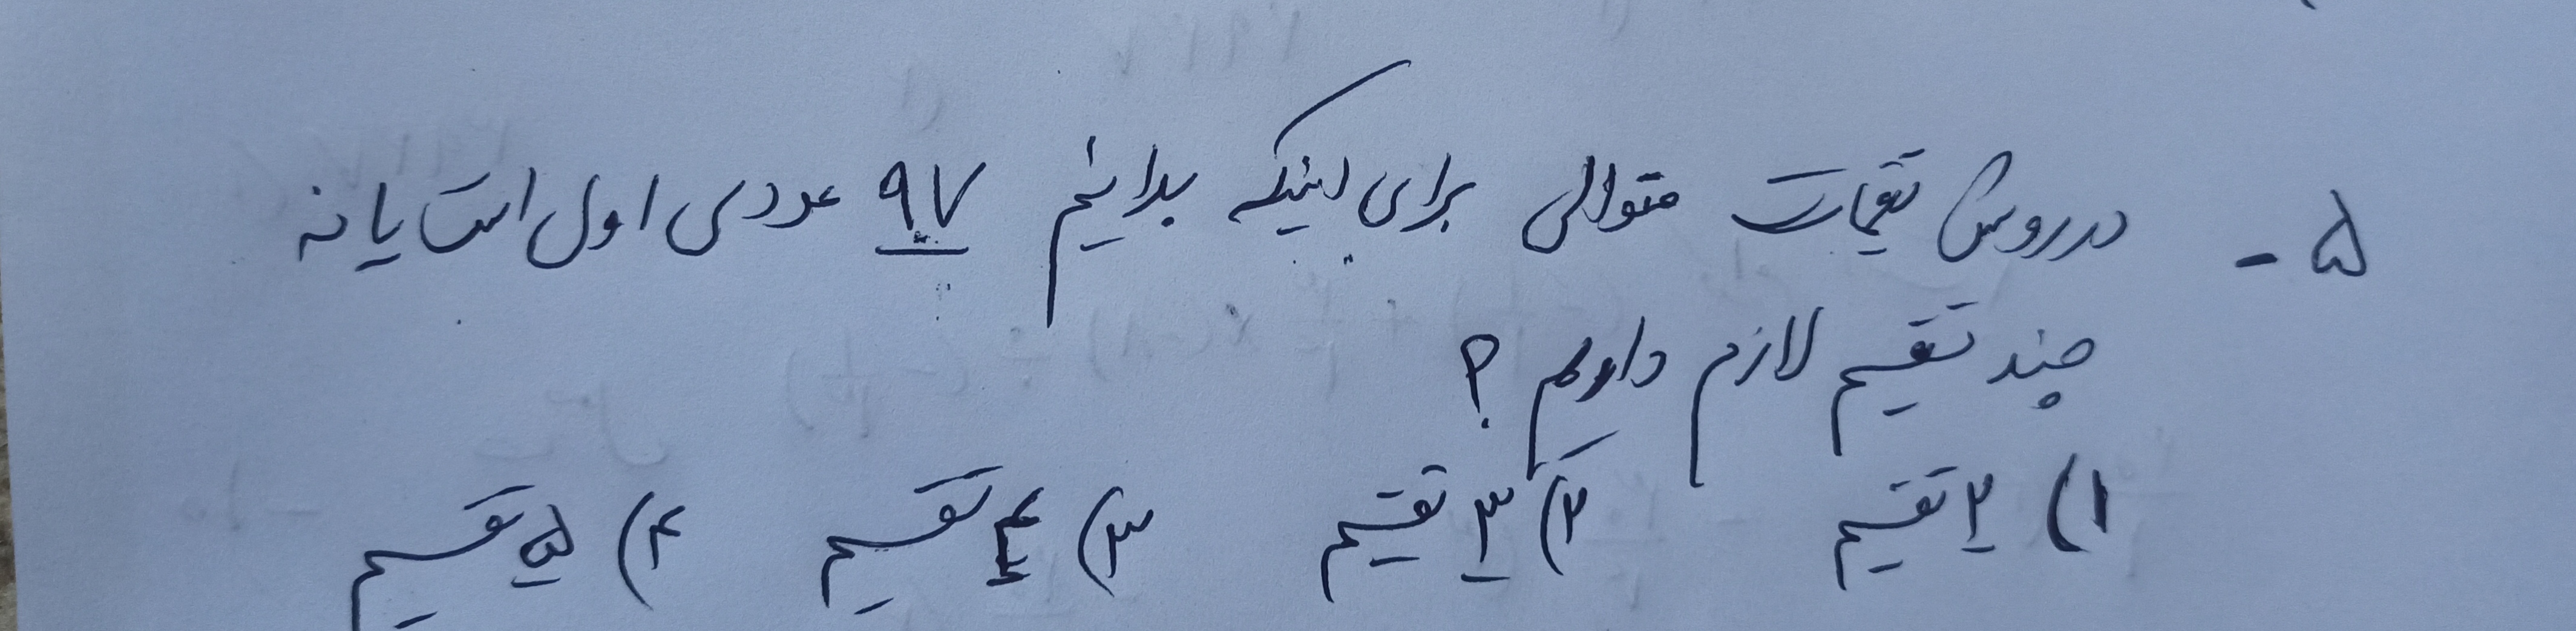 ۵- در روش تقیمات متوالی برای اینکه بدانیم ۹۷ عددی اول است یا نه
چند تقسیم لازم داریم ؟
۱) ۲ تقسیم ۲) ۳ تقسیم ۳) ۴ تقسیم ۴) ۵ تقسیم